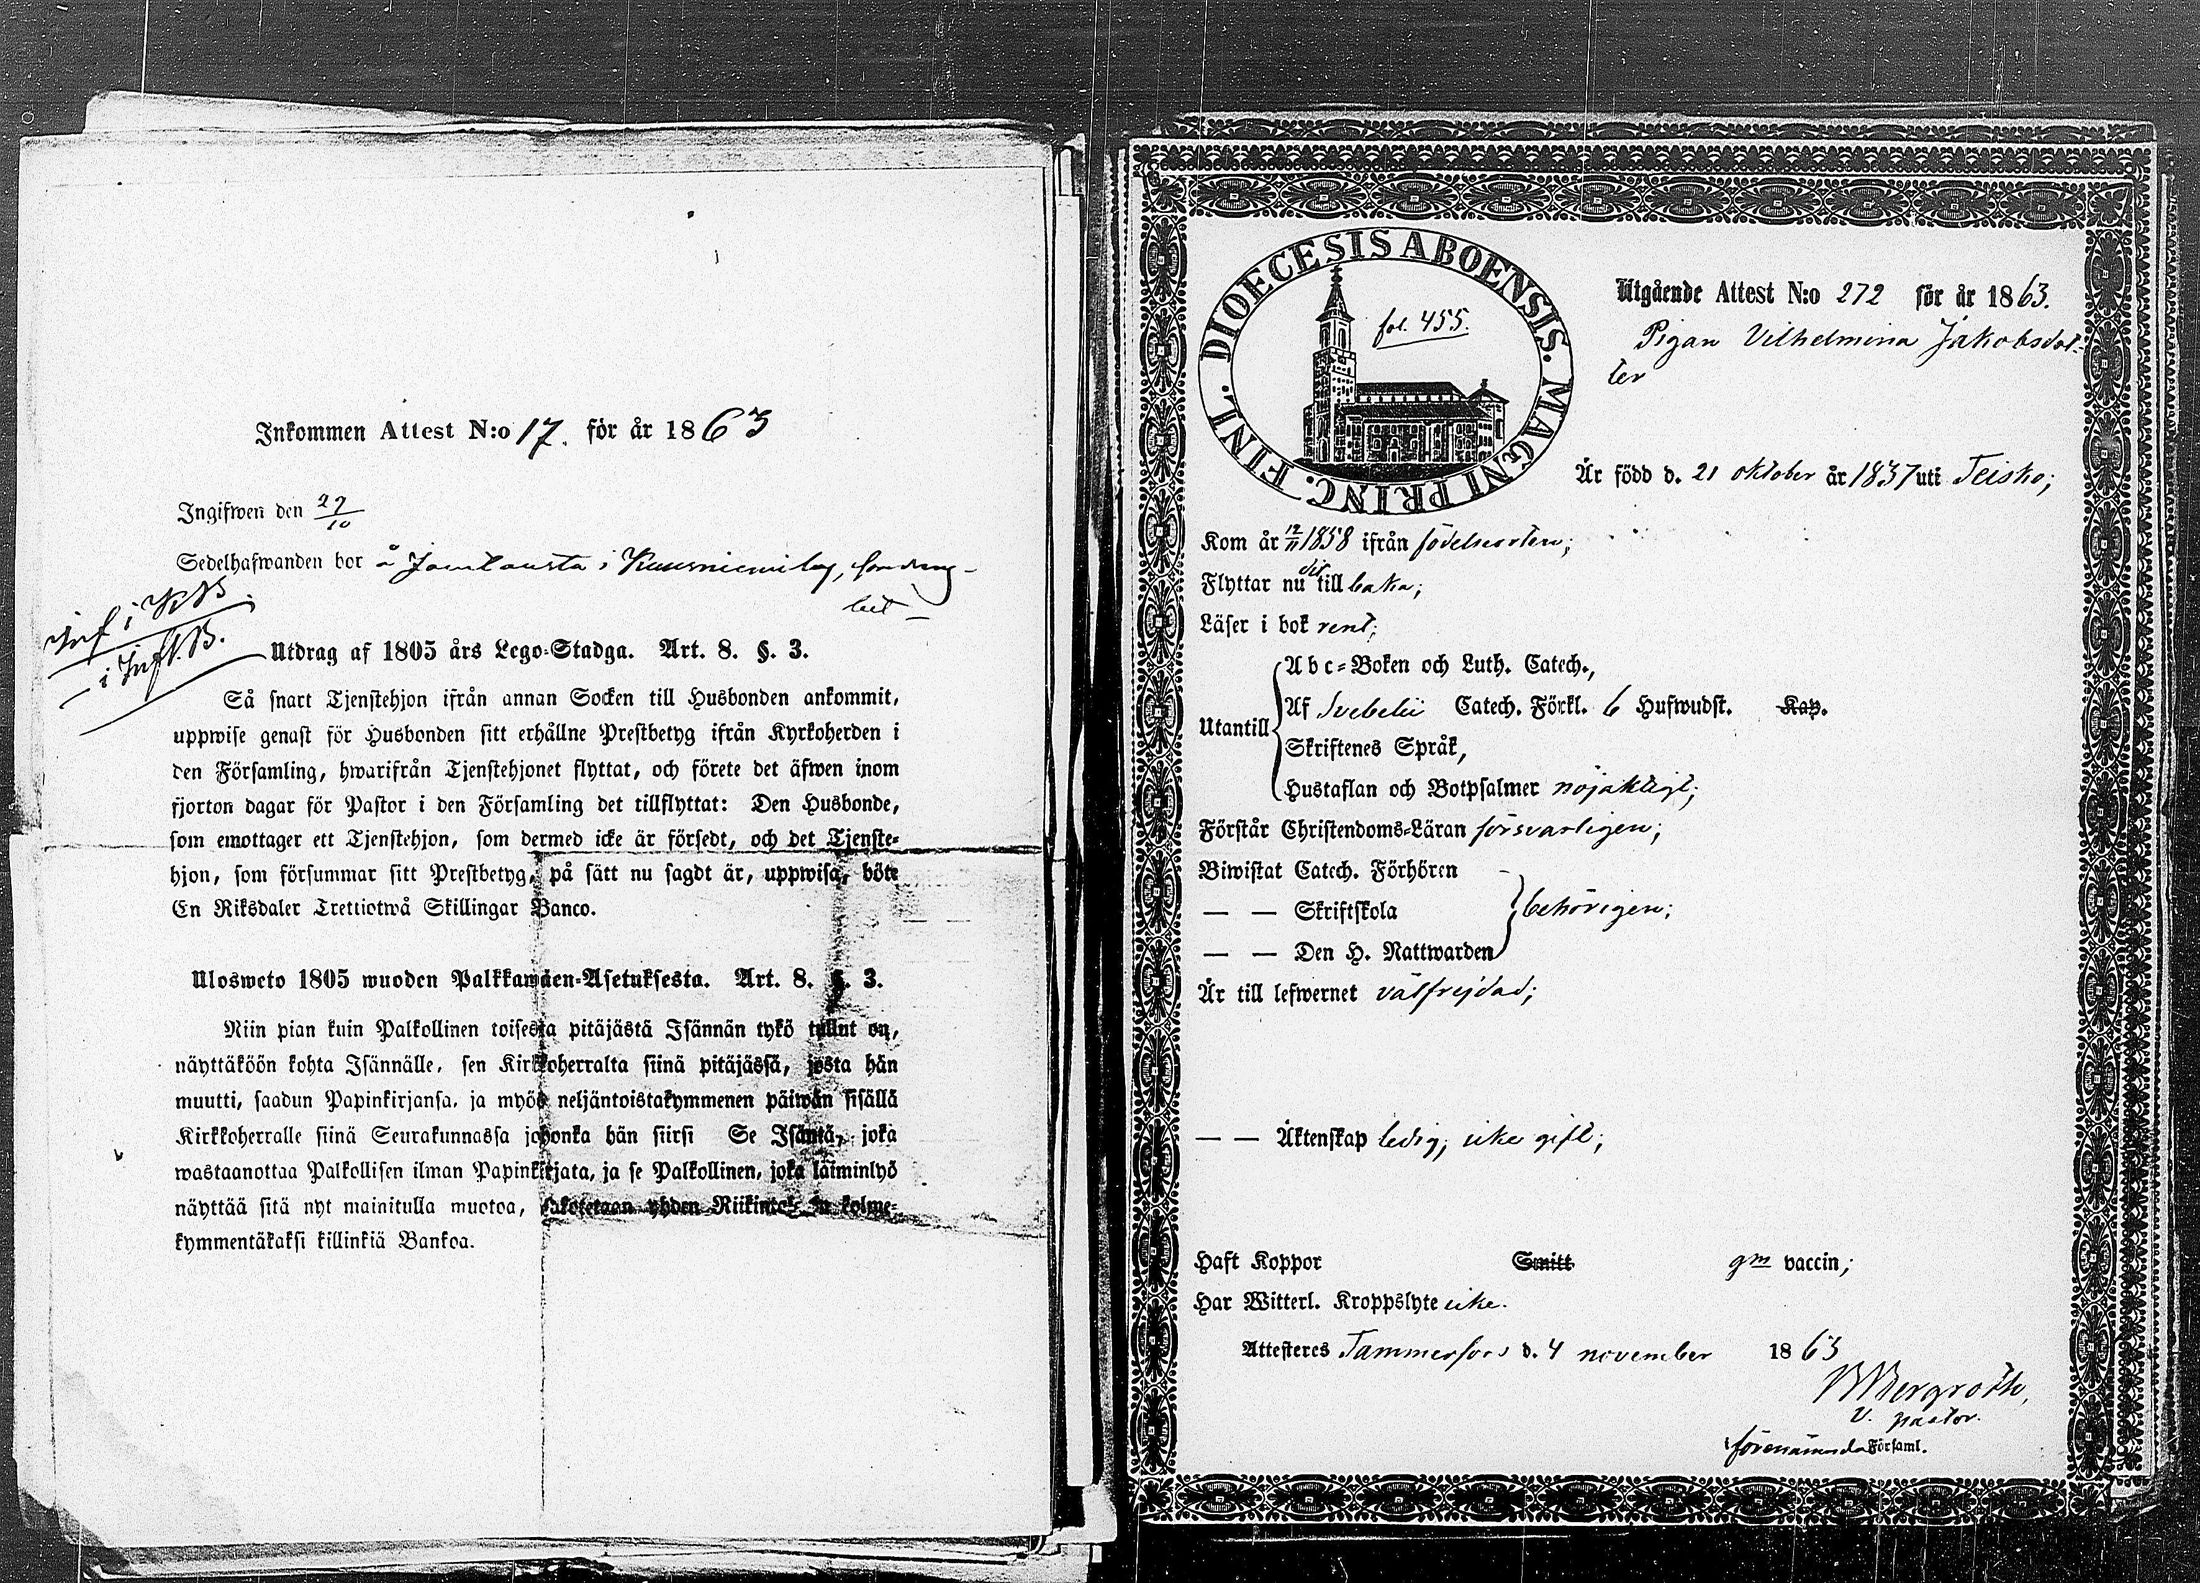 Inkommen Attest N:o 17. för år 1863
Ingifwen den 27/10
Sedelhafwanden bor å i
i
Utdrag af 1805 års Lego-Stadga. Art. 8. §. 3.
Så snart Tjenstehjon ifrån annan Socken till Husbonden ankommit,
uppwise genast för Husbonden sitt erhållne Prestbetyg ifrån Kyrkoherden i
den Församling, hwarifrån Tjenstehjonet flyttat, och förete det äfwen inom
fjorton dagar för Pastor i den Församling det tillflyttat: Den Husbonde,
som emottager ett Tjenstehjon, som dermed icke är försedt, och det Tjenste-
hjon, som försummar sitt Prestbetyg, på sätt nu sagdt är, uppwisa, böte
En Riksdaler Trettiotwå Skillingar Banco.
Ulosweto 1805 wuoden Palkkawäen-Asetuksesta. Art. 8. §. 3.
Niin pian kuin Palkollinen toisesta pitäjästä Isännän tykö tullut on,
näyttäköön kohta Isännälle, sen Kirkkoherralta siinä pitäjässä, josta hän
muutti, saadun Papinkirjansa, ja myös neljäntoistakymmenen päiwän sisällä
Kirkkoherralle siinä Seurakunnassa johonka hän siirsi Se Isäntä, joka
wastaanottaa Palkollisen ilman Papinkirjata, ja se Palkollinen, joka laiminlyö
näyttää sitä nyt mainitulla muotoa, sakotetaan yhden Riikint: ja kolme-
kymmentäkaksi killinkiä Bankoa.
DIOECESIS ABOENSIS. MAGNI PRINC. FINL.
fol. 455.
Utgående Attest N:o 272 för år 1863.
Pigan Vilhelmina Jakobsdot-
ter
Är född d. 21 oktober år 1837 uti Teisko;
Kom år 12/11 1858 ifrån födelseorten;
Flyttar nu dit till baka;
Läser i bok rent;
Utantill
Abc-Boken och Luth. Catech.,
Af Svebelii Catech. Förkl. 6 Hufwudst. Kap.
Skriftenes Språk,
Hustaflan och Botpsalmer nöjaktigt;
Förstår Christendoms-Läran försvarligen;
Biwistat Catech. Förhören
— — Skriftskola behörigen;
— — Den H. Nattwarden
Är till lefwernet välfrejdad;
— — Äktenskap ledig, icke gift;
Haft Koppor Smitt gm vaccin;
Har Witterl. Kroppslyte icke.
Attesteres Tammerfors d. 4 november 1863
Bergroth,
v. pastor.
i förenämnda Församl.